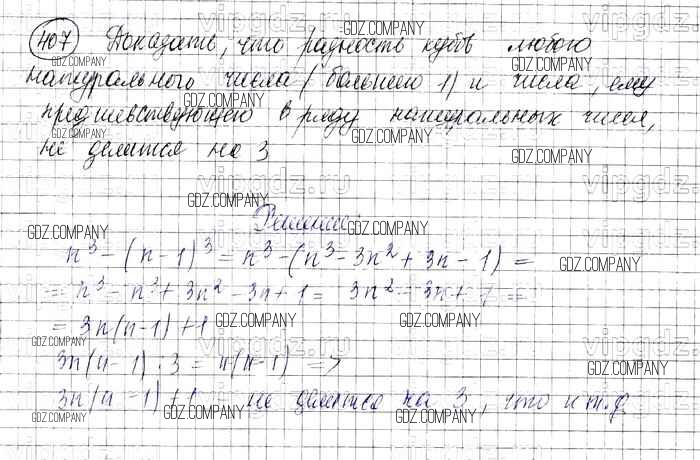 407 Доказать, что разность кубов любого
натурального числа (большего 1) и числа, ему
предшествующего в ряду натуральных чисел,
не делится на 3
Решение
n³ - (n - 1)³ = n³ - (n³ - 3n² + 3n - 1) =
= n³ - n³ + 3n² - 3n + 1 = 3n² - 3n + 1 =
= 3n(n-1) + 1
3n(n-1) : 3 = n(n-1) =>
3n(n-1) + 1 не делится на 3, что и т.д.
GDZ.COMPANY
vipgdz.ru